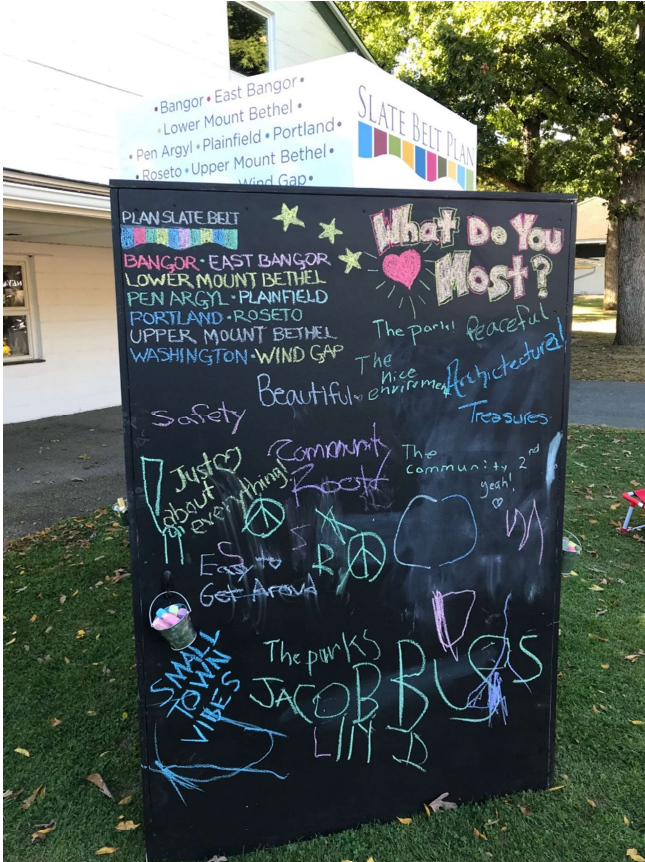 • Bangor • East Bangor •
• Lower Mount Bethel •
• Pen Argyl • Plainfield • Portland •
• Roseto • Upper Mount Bethel •
Wind Gap •
SLATE BELT PLAN
PLAN SLATE BELT
BANGOR · EAST BANGOR
LOWER MOUNT BETHEL
PEN ARGYL · PLAINFIELD
PORTLAND · ROSETO
UPPER MOUNT BETHEL
WASHINGTON · WIND GAP
What Do You
Most?
The park!
Peaceful
The
Nice
Architectural
Treasures
Beautiful
Safety
Community
The
community
2nd
yeah!
Just
about
everything!
Easy to
Get Around
SMALL
TOWN
VIBES
The parks
JACOB